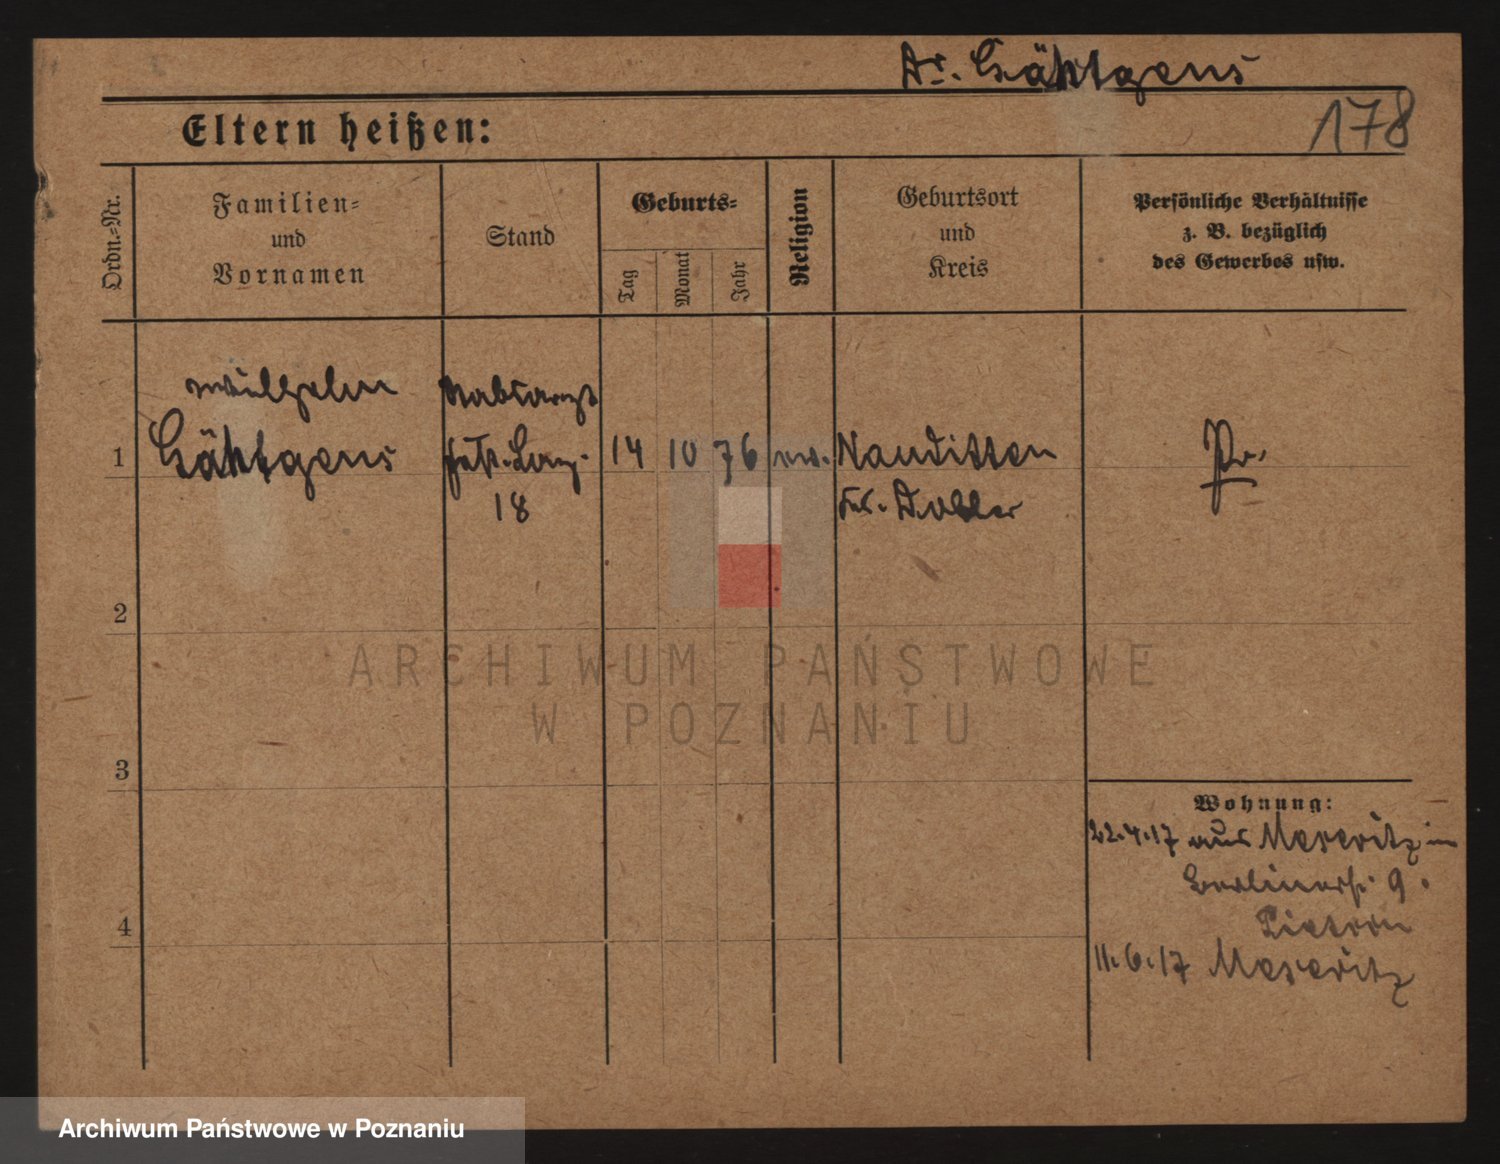 Dr. Gähtgens
178
Eltern heißen:
Ordn.-Nr.
Familien-
und
Vornamen
Stand
Geburts-
Tag
Monat
Jahr
Religion
Geburtsort
und
Kreis
Persönliche Verhältnisse
z. B. bezüglich
des Gewerbes usw.
Wilhelm
Stabsarzt
1
Gähtgens
Fest. Laz.
14
10
76
ev.
Pr.
18
2
ARCHIWUM PAŃSTWOWE
W POZNANIU
3
Wohnung:
22.4.17 aus Meseritz in
Berlinerstr. 9.
4
11.6.17 Meseritz
Archiwum Państwowe w Poznaniu